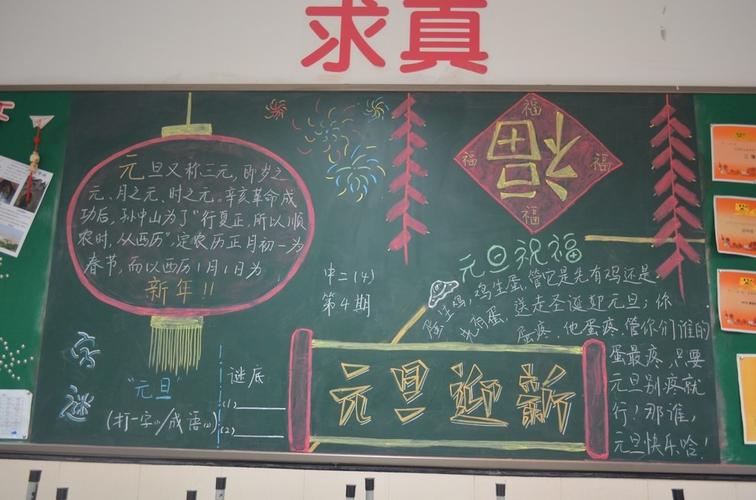 求真
元旦又称三元，即岁之
元、月之元、时之元。辛亥革命成
功后，孙中山为了“行夏正，所以顺
农时，从西历”，定农历正月初一为
春节，而以西历1月1日为
新年！！
福
福
福
福
福
中二(4)
第4期
元旦祝福
蛋生鸡，鸡生蛋，管它是先有鸡还是
先有蛋，送走圣诞迎元旦；你
蛋疼，他蛋疼，管你们谁的
蛋最疼，只要
元旦别疼就
行！那谁，
元旦快乐哈！
字谜
“元旦”
(打一字(1)/成语(2))
谜底
(1)
(2)
元旦迎新